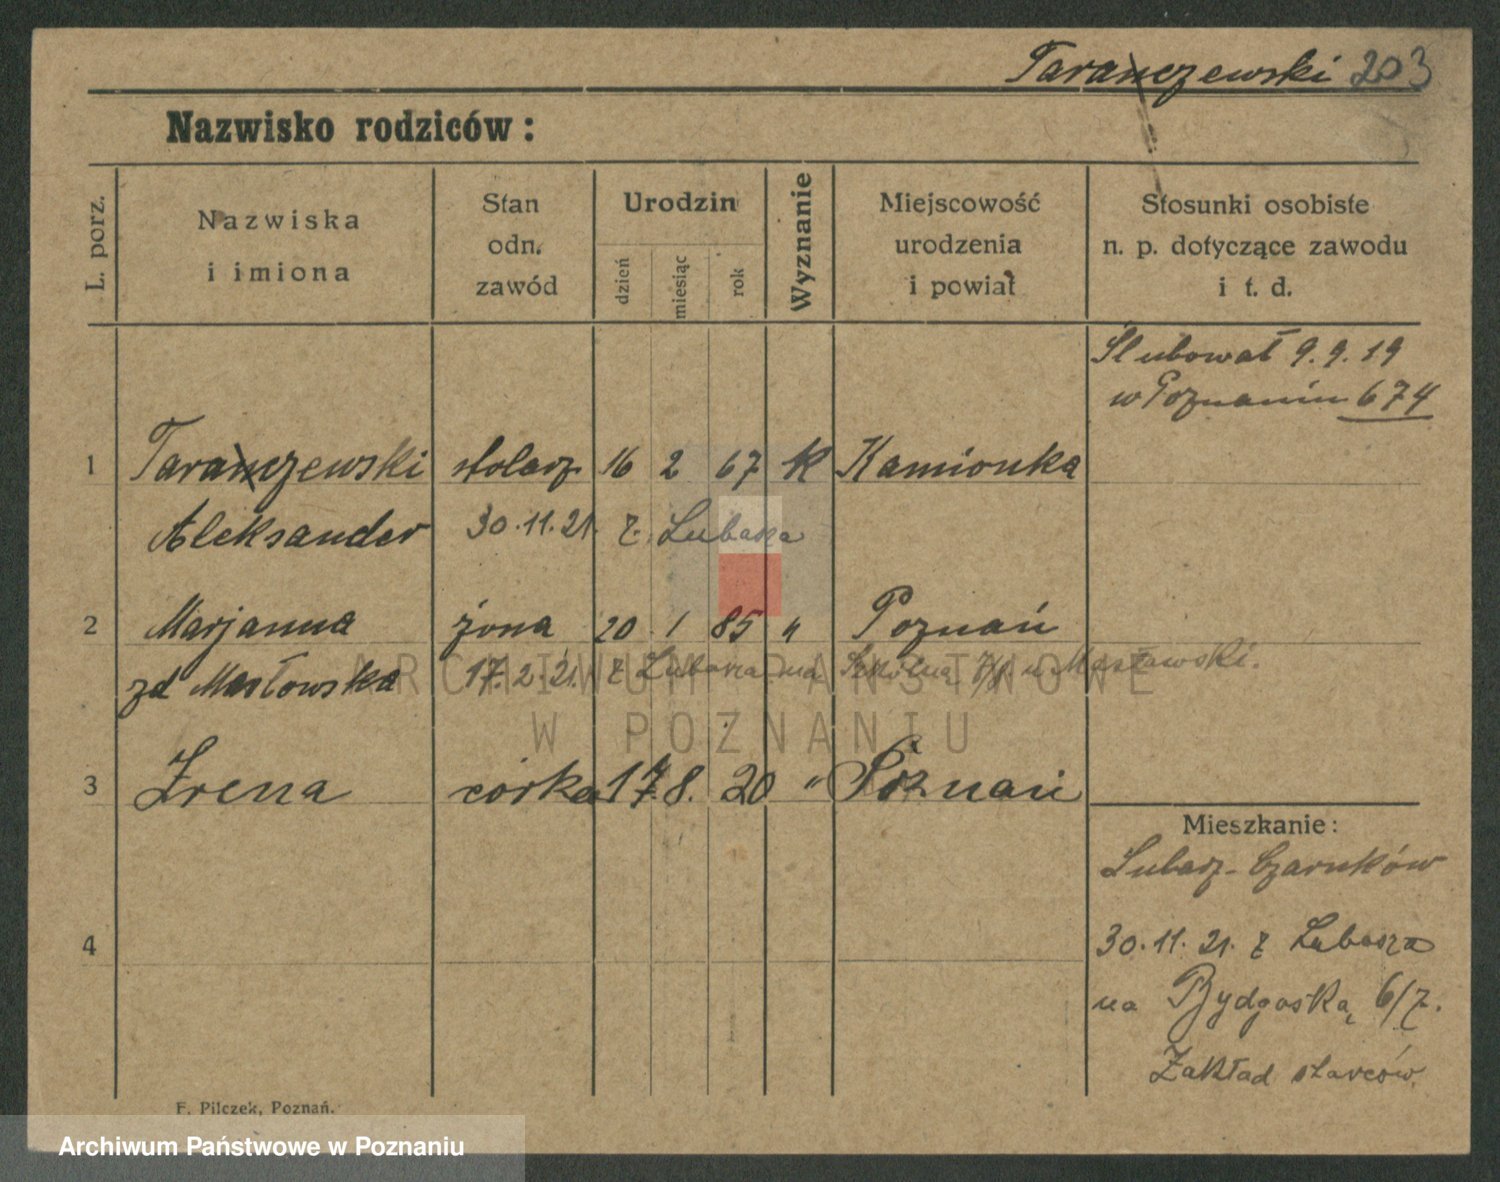 Taranczewski 203
Nazwisko rodziców:
L. porz.
Nazwiska
i imiona
Stan
odn.
zawód
Urodzin
dzień
miesiąc
rok
Wyznanie
Miejscowość
urodzenia
i powiat
Stosunki osobiste
n. p. dotyczące zawodu
i t. d.
Slubował 9.9.19
w Poznaniu 674
1 Taranczewski stolarz 16 2 67 K Kamionka
Aleksander 30.11.21. z Lubasza
2 Marjanna żona 20 1 85 " Poznań
zd Masłowska 17.2.21. z Lubasza na Szkolną u Masławski.
ARCHIWUM PAŃSTWOWE
W POZNANIU
3 Irena córka 17 8. 20 " Poznań
Mieszkanie:
Lubasz-Czarnków
4
30.11.21. z Lubasza
na Bydgoską 6/7.
Zakład starców.
F. Pilczek, Poznań.
Archiwum Państwowe w Poznaniu